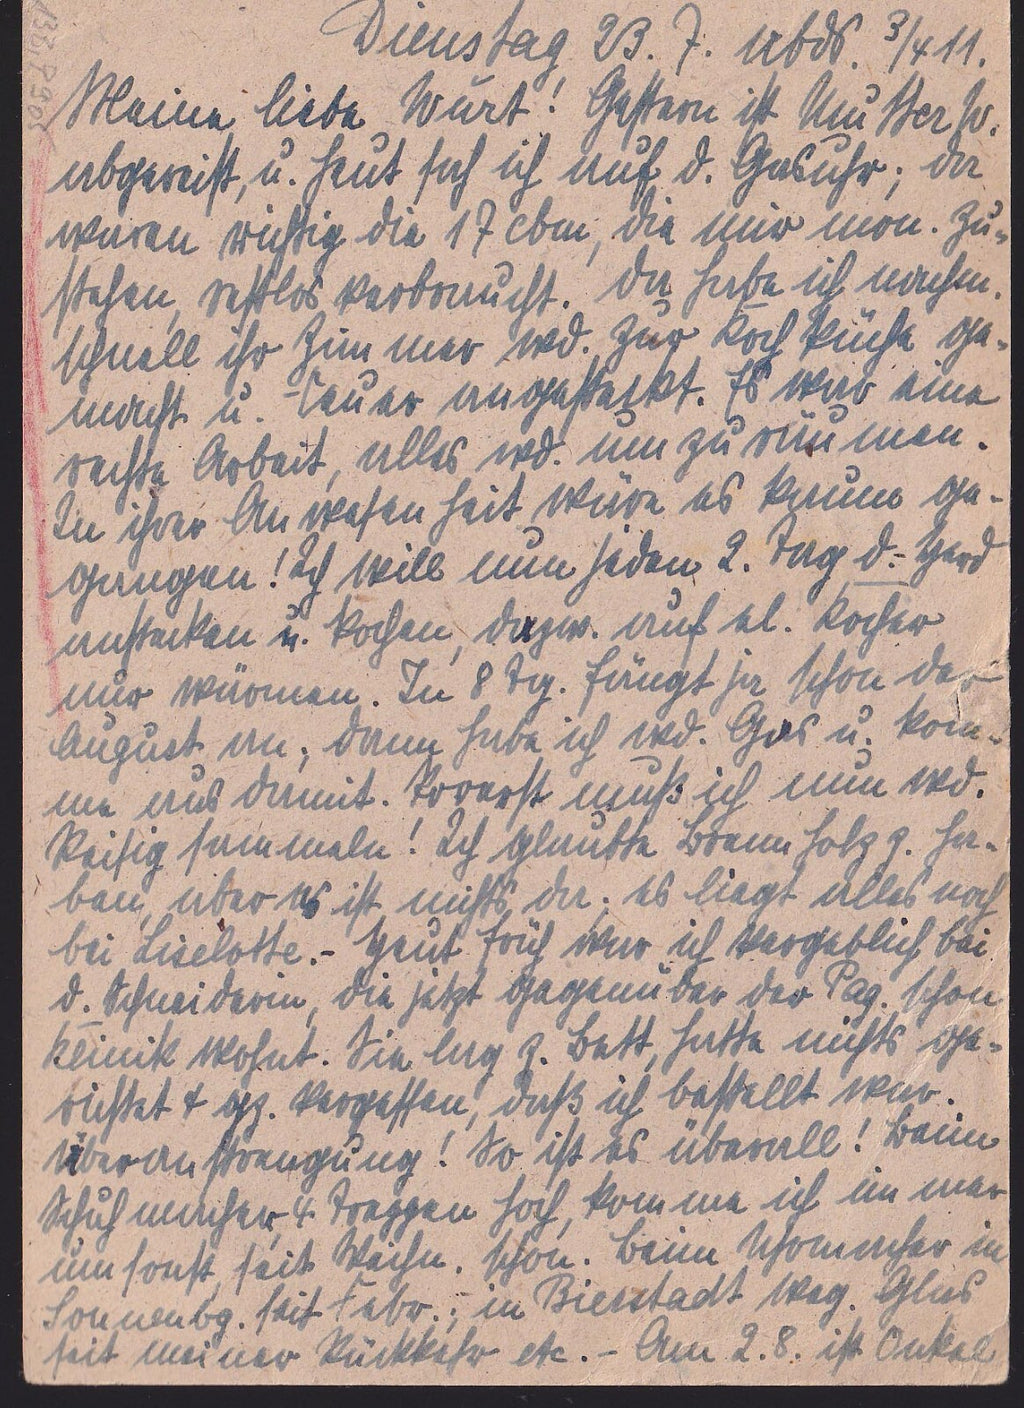 Dienstag 23. 7. abds. 3/4 11.
Meine liebe Gestern ist Mutter W.
abgereist, u. heut sah ich auf d. Gasuhr; da
waren richtig die 17 cbm, die mir mon. zu-
stehen, restlos verbraucht. Da habe ich nachm.
schnell ihr Zimmer wd. zur Kochküche ge-
macht u. Feuer angesteckt. Es war eine
rechte Arbeit, alles wd. umzuräumen.
In ihrer Anwesenheit wäre es kaum ge-
gangen! Ich will nun jeden 2. Tag d. Herd
anstecken u. kochen, dazw. auf el. Kocher
nur wärmen. In 8 Tg. fängt ja schon der
August an, dann habe ich wd. Gas u. kom-
me aus damit. Vorerst muß ich nun wd.
Reisig sammeln! Ich glaubte Brennholz z. ha-
ben, aber es ist nichts da; es liegt alles noch
bei Liselotte. - Heut früh war ich vergeblich bei
d. Schneiderin, die jetzt gegenüber der
klinik wohnt. Sie lag z. Bett, hatte nichts ge-
richtet & gz. vergessen, daß ich bestellt war.
Überanstrengung! So ist es überall! Beim
Schuhmacher, 4 Treppen hoch, komme ich immer
umsonst, seit Weihn. schon. Beim Uhrmacher in
Sonnenbg. seit Febr.; in Bierstadt weg. Glas
seit meiner Rückkehr etc. - Am 2. 8. ist Onkel